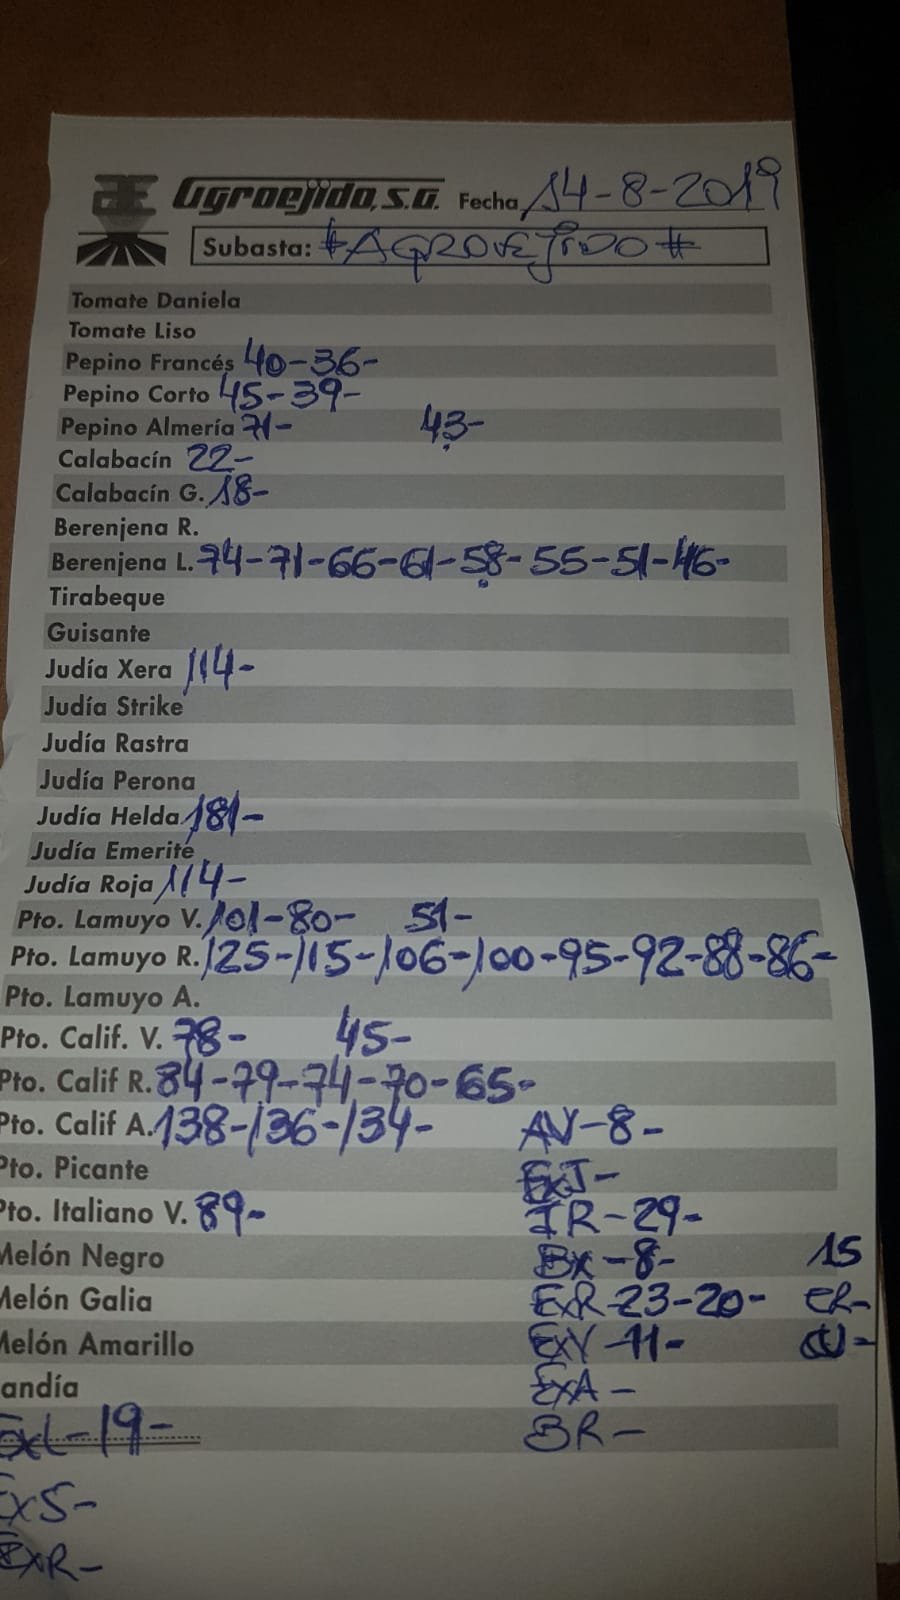 Agroejido, S.A. Fecha 14-8-2019
Subasta: #AGROEJIDO#
Tomate Daniela
Tomate Liso
Pepino Francés 40-36-
Pepino Corto 45-39-
Pepino Almería 71- 43-
Calabacín 22-
Calabacín G. 18-
Berenjena R.
Berenjena L. 74-71-66-61-58-55-51-46-
Tirabeque
Guisante
Judía Xera 114-
Judía Strike
Judía Rastra
Judía Perona
Judía Helda 181-
Judía Emerite
Judía Roja 114-
Pto. Lamuyo V. 101-80- 51-
Pto. Lamuyo R. 125-115-106-100-95-92-88-86-
Pto. Lamuyo A.
Pto. Calif. V. 78- 45-
Pto. Calif R. 84-79-74-70-65-
Pto. Calif A. 138-136-134- AV-8-
Pto. Picante ExJ-
Pto. Italiano V. 89- IR-29-
Melón Negro Bx-8- 15
Melón Galia ExR-23-20- CR-
Melón Amarillo ExV-11- CV-
andía ExA-
ExL-19- BR-
ExS-
ExR-